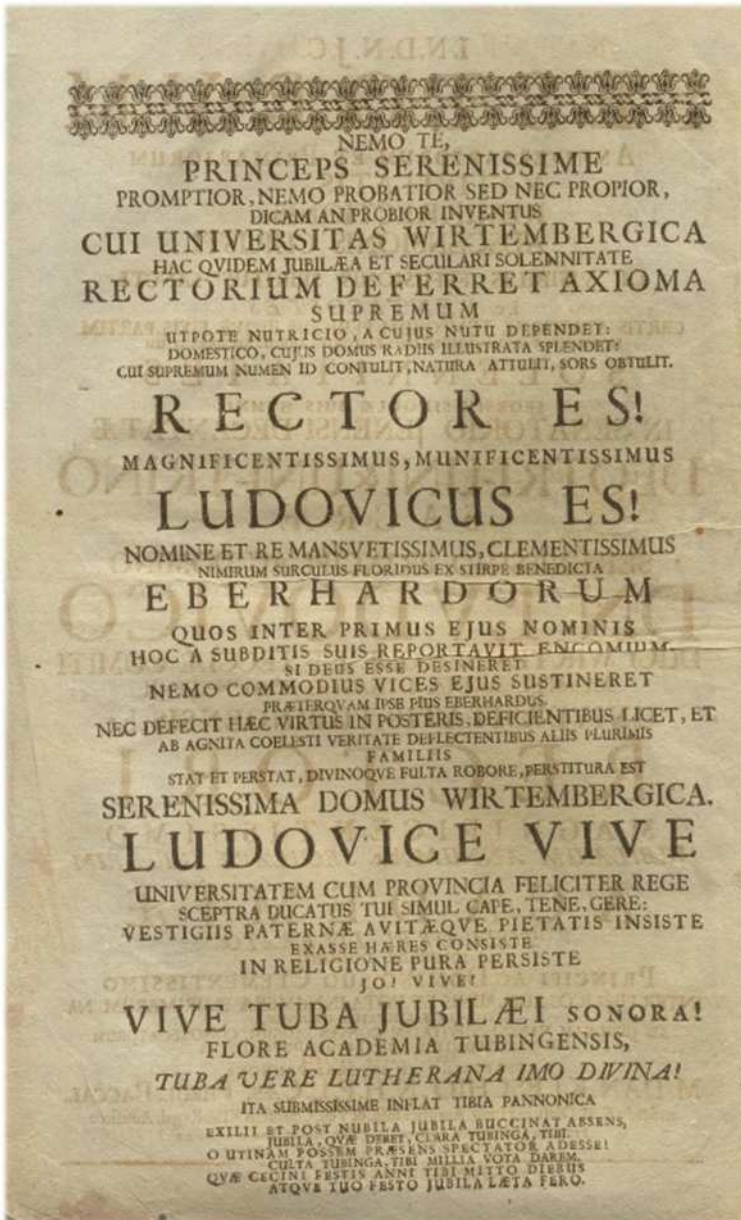 NEMO TE,
PRINCEPS SERENISSIME
PROMPTIOR, NEMO PROBATIOR SED NEC PROPIOR,
DICAM AN PROBIOR INVENTUS
CUI UNIVERSITAS WIRTEMBERGICA
HAC QVIDEM JUBILÆA ET SECULARI SOLENNITATE
RECTORIUM DEFERRET AXIOMA
SUPREMUM
UTPOTE NUTRICIO, A CUJUS NUTU DEPENDET:
DOMESTICO, CUJUS DOMUS RADIIS ILLUSTRATA SPLENDET:
CUI SUPREMUM NUMEN ID CONTULIT, NATURA ATTULIT, SORS OBTULIT.
RECTOR ES!
MAGNIFICENTISSIMUS, MUNIFICENTISSIMUS
LUDOVICUS ES!
NOMINE ET RE MANSVETISSIMUS, CLEMENTISSIMUS
NIMIRUM SURCULUS FLORIDUS EX STIRPE BENEDICTA
EBERHARDORUM
QUOS INTER PRIMUS EJUS NOMINIS
HOC A SUBDITIS SUIS REPORTAVIT ENCOMIUM.
SI DEUS ESSE DESINERET
NEMO COMMODIUS VICES EJUS SUSTINERET
PRÆTERQVAM IPSE PIUS EBERHARDUS.
NEC DEFECIT HÆC VIRTUS IN POSTERIS, DEFICIENTIBUS LICET, ET
AB AGNITA COELESTI VERITATE DEFLECTENTIBUS ALIIS PLURIMIS
FAMILIIS
STAT ET PERSTAT, DIVINOQVE FULTA ROBORE, PERSTITURA EST
SERENISSIMA DOMUS WIRTEMBERGICA.
LUDOVICE VIVE
UNIVERSITATEM CUM PROVINCIA FELICITER REGE
SCEPTRA DUCATUS TUI SIMUL CAPE, TENE, GERE:
VESTIGIIS PATERNÆ AVITÆQVE PIETATIS INSISTE
EXASSE HÆRES CONSISTE
IN RELIGIONE PURA PERSISTE
JO! VIVE!
VIVE TUBA JUBILÆI SONORA!
FLORE ACADEMIA TUBINGENSIS,
TUBA VERE LUTHERANA IMO DIVINA!
ITA SUBMISSISSIME INFLAT TIBIA PANNONICA
EXILII ET POST NUBILA JUBILA BUCCINAT ABSENS,
JUBILA, QVÆ DEBET, CLARA TUBINGA, TIBI.
O UTINAM POSSEM PRÆSENS SPECTATOR ADESSE!
CULTA TUBINGA, TIBI MILLIA VOTA DAREM.
QVÆ CECINI FESTIS ANNI TIBI MITTO DIEBUS
ATQVE TUO FESTO JUBILA LÆTA FERO.